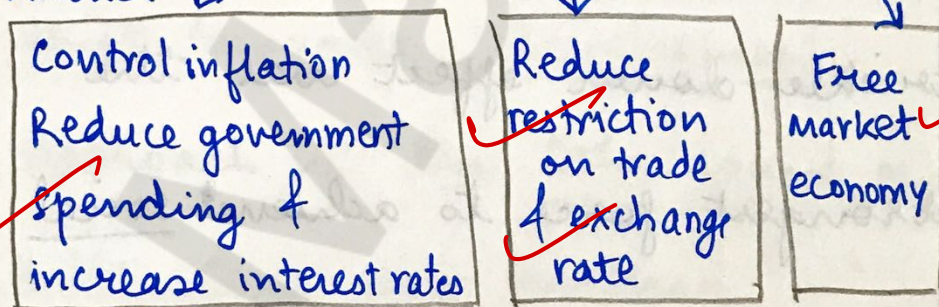 Control inflation
Reduce government
spending &
increase interest rates
Reduce
restriction
on trade
& exchange
rate
Free
market
economy